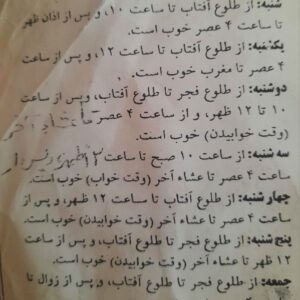 شنبه: از طلوع آفتاب تا ساعت ۱۰، و پس از اذان ظهر
تا ساعت ۴ عصر خوب است.
یکشنبه: از طلوع آفتاب تا ساعت ۱۲، و پس از ساعت
۴ عصر تا مغرب خوب است.
دوشنبه: از طلوع فجر تا طلوع آفتاب، وپس از ساعت
۱۰ تا ۱۲ ظهر، و از ساعت ۴ عصر تا عشاء آخر
(وقت خوابیدن) خوب است.
سه شنبه: از ساعت ۱۰ صبح تا ساعت ۱۲ ظهر و پس از
ساعت ۴ عصر تا عشاء آخر (وقت خواب) خوب است.
چهار شنبه: از طلوع آفتاب تا ساعت ۱۲ ظهر، و پس از
ساعت ۴ عصر تا عشاء آخر (وقت خوابیدن) خوب است.
پنج شنبه: از طلوع فجر تا طلوع آفتاب، و پس از ساعت
۱۲ ظهر تا عشاء آخر (وقت خوابیدن) خوب است.
جمعه: از طلوع فجر تا طلوع آفتاب، و پس از زوال تا